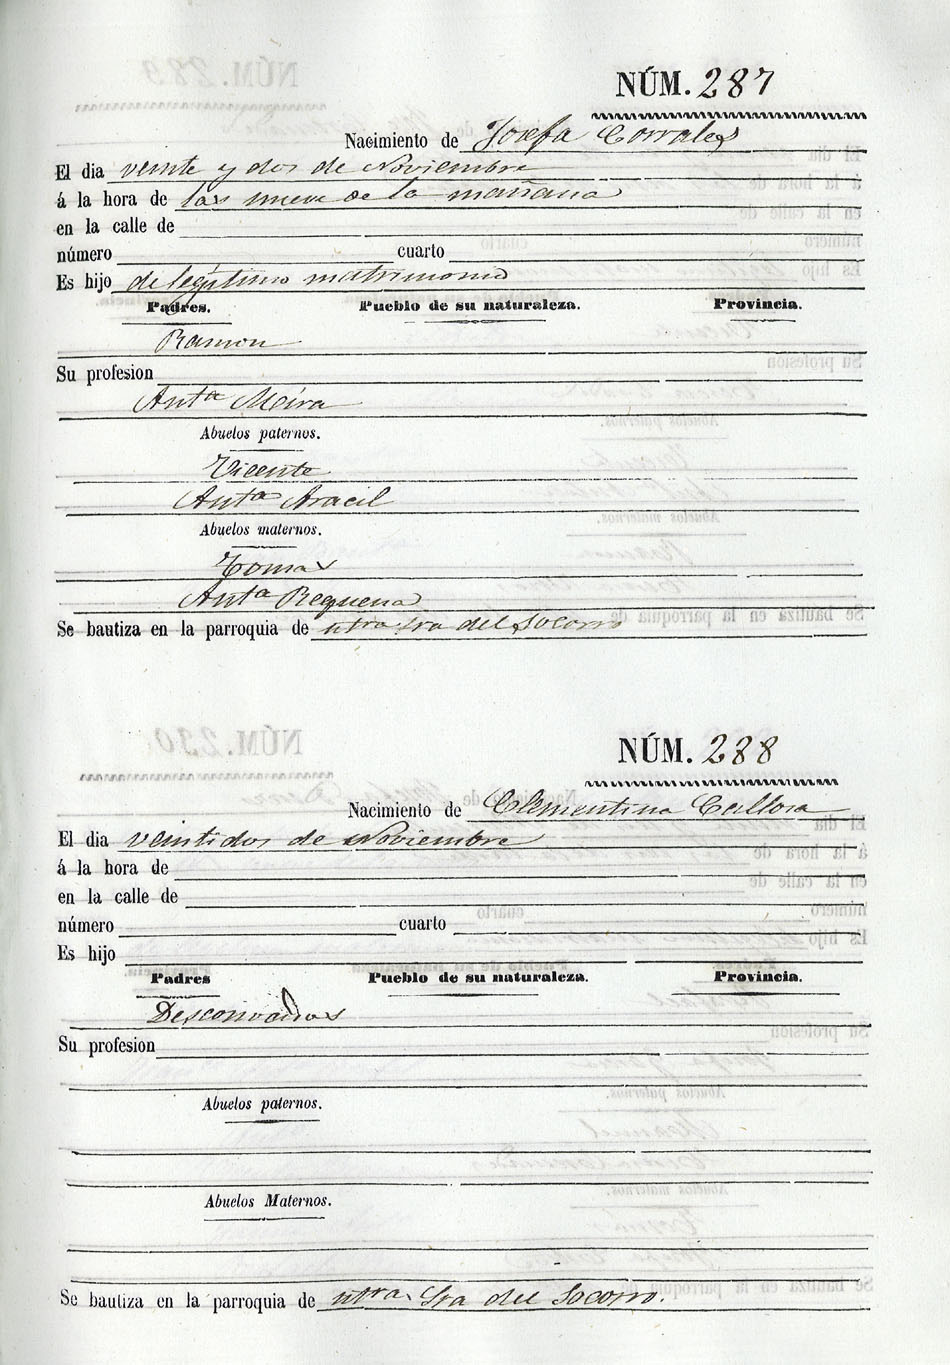 NÚM. 287
Nacimiento de Josefa Corrales
El dia veinte y dos de Noviembre
á la hora de las nueve de la mañana
en la calle de
número cuarto
Es hijo de legitimo matrimonio
Padres. Pueblo de su naturaleza. Provincia.
Ramon
Su profesion
Anta Meira
Abuelos paternos.
Vicente
Anta Aracil
Abuelos maternos.
Tomas
Anta Requena
Se bautiza en la parroquia de ntra Sra del Socorro
NÚM. 288
Nacimiento de Clementina Callosa
El dia veintidos de Noviembre
á la hora de
en la calle de
número cuarto
Es hijo
Padres Pueblo de su naturaleza. Provincia.
Desconocidos
Su profesion
Abuelos paternos.
Abuelos Maternos.
Se bautiza en la parroquia de ntra Sra del Socorro.